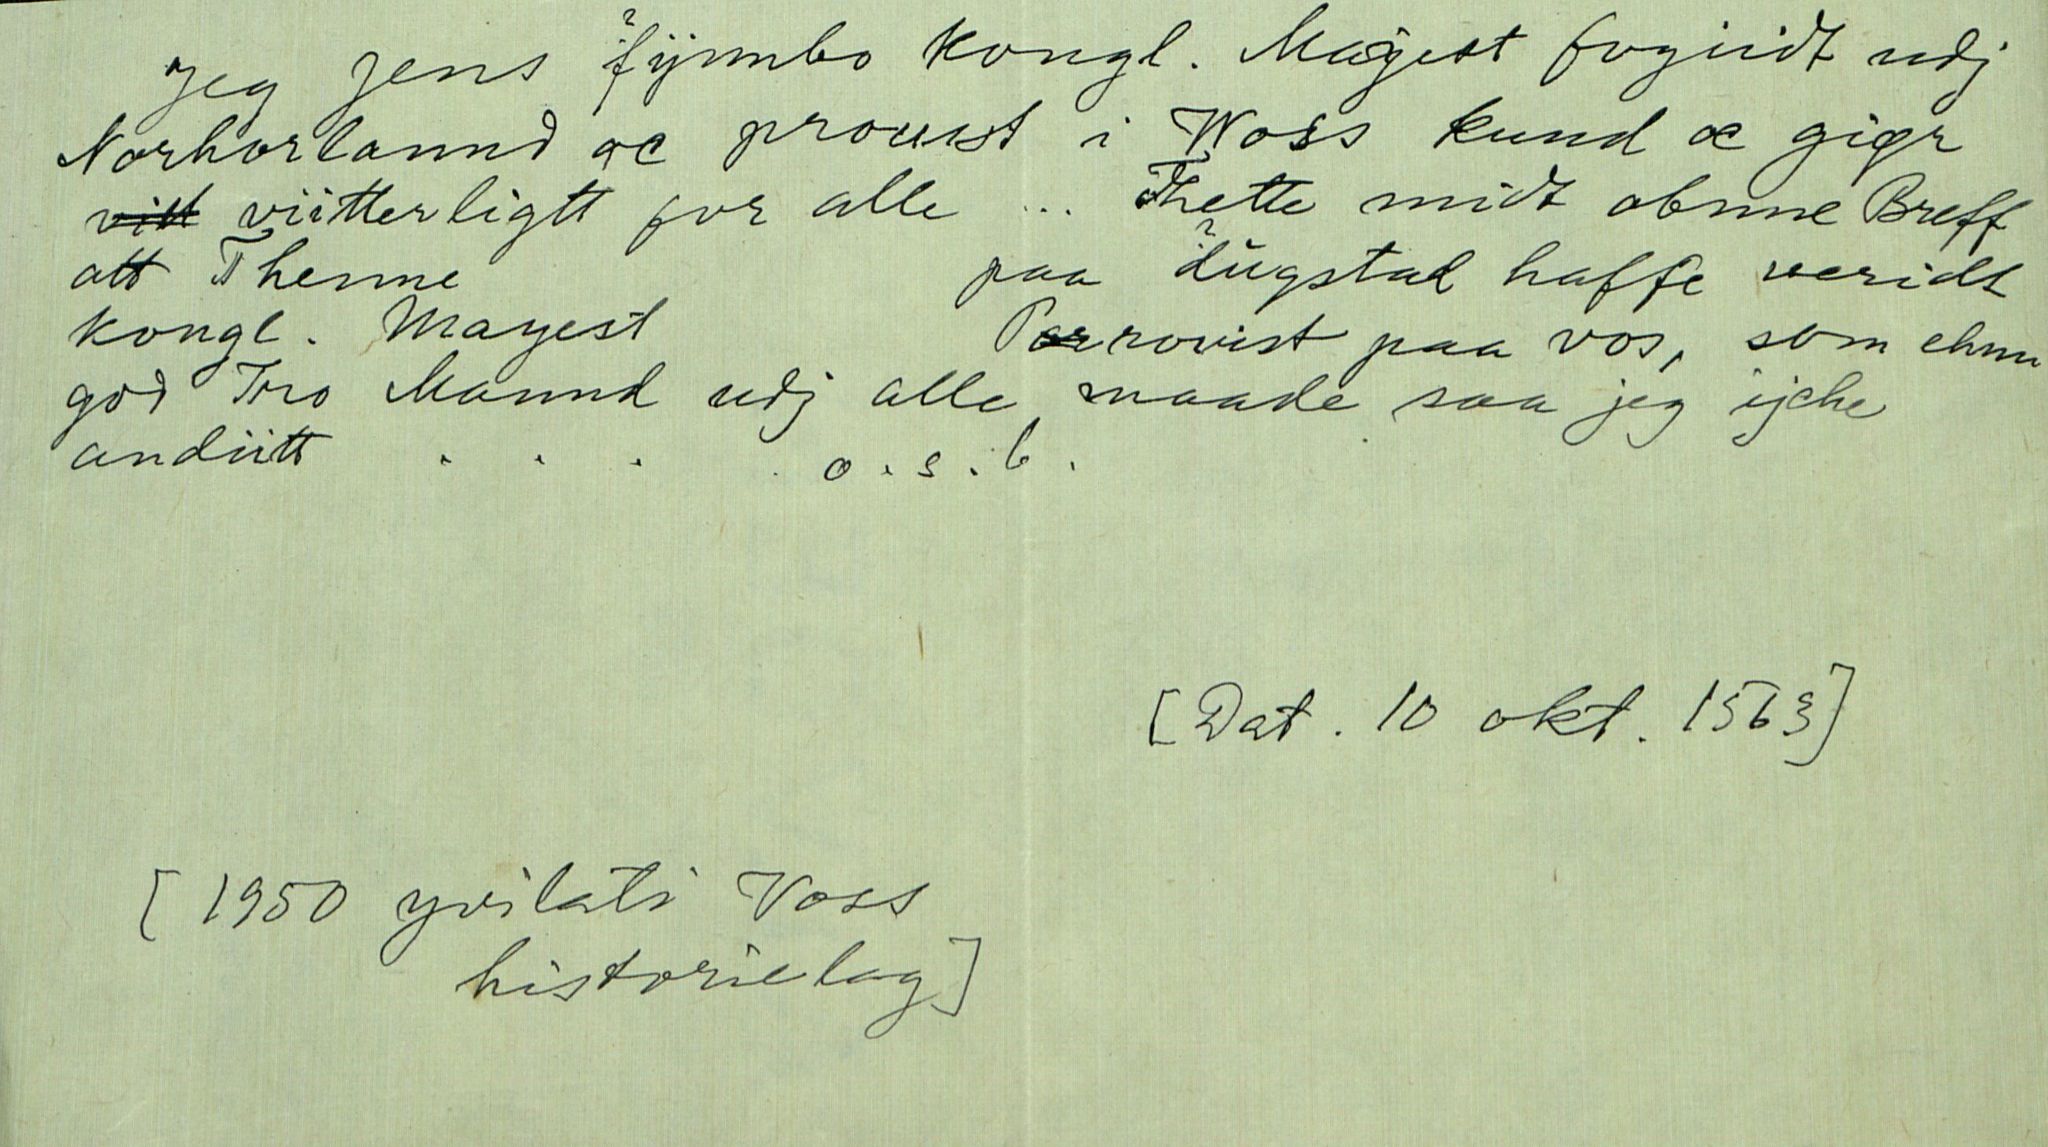 Jeg Jens fijnnbo kongl. Mayest fogiidt udj
Norhorlannd oc prouist i Woss kund oc giør
vitt viitterligtt for alle ... Thette midt obnne Breff
att Thenne paa dugstad haffe veridt
kongl. Mayest Prrovist paa vos, som ehnn
god Tro Mannd udj alle maade saa jeg ijche
andiitt . . . . o.s.b.
[Dat. 10 okt. 1563]
[1950 yvilati Voss
historielag]